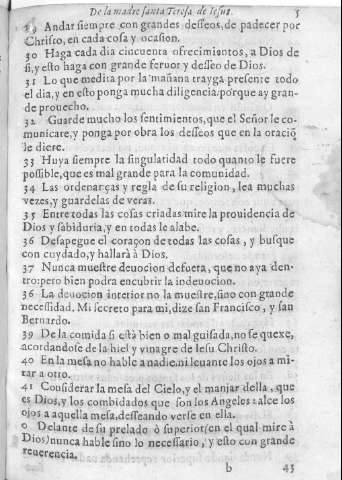 De la madre santa Teresa de Iesus. 5
29 Andar siempre con grandes desseos, de padecer por
Christo, en cada cosa y ocasion.
30 Haga cada dia cincuenta ofrecimiẽtos, a Dios de
si, y esto haga con grande feruor y desseo de Dios.
31 Lo que medita por la mañana trayga presente todo
el dia, y en esto ponga mucha diligencia: porque ay gran-
de prouecho.
32 Guarde mucho los sentimientos, que el Señor le co-
municare, y ponga por obra los desseos que en la oraciõ
le diere.
33 Huya siempre la singularidad todo quanto le fuere
possible, que es mal grande para la comunidad.
34 Las ordenanças y regla de su religion, lea muchas
vezes, y guardelas de veras.
35 Entre todas las cosas criadas mire la prouidencia de
Dios y sabiduria, y en todas le alabe.
36 Desapegue el coraçon de todas las cosas, y busque
con cuydado, y hallarà à Dios.
37 Nunca muestre deuocion defuera, que no aya den-
tro: pero bien podra encubrir la indeuocion.
36 La deuocion interior no la muestre, sino con grande
necessidad. Mi secreto para mi, dize san Francisco, y san
Bernardo.
39 De la comida si està bien o mal guisada, no se quexe,
acordandose de la hiel y vinagre de Iesu Christo.
40 En la mesa no hable a nadie, ni leuante los ojos a mi-
rar a otro.
41 Considerar la mesa del Cielo, y el manjar della, que
es Dios, y los combidados que son los Angeles: alce los
ojos a aquella mesa, desseando verse en ella.
0 Delante de su prelado ò superior (en el qual mire à
Dios) nunca hable sino lo necessario, y esto con grande
reuerencia.
b 43